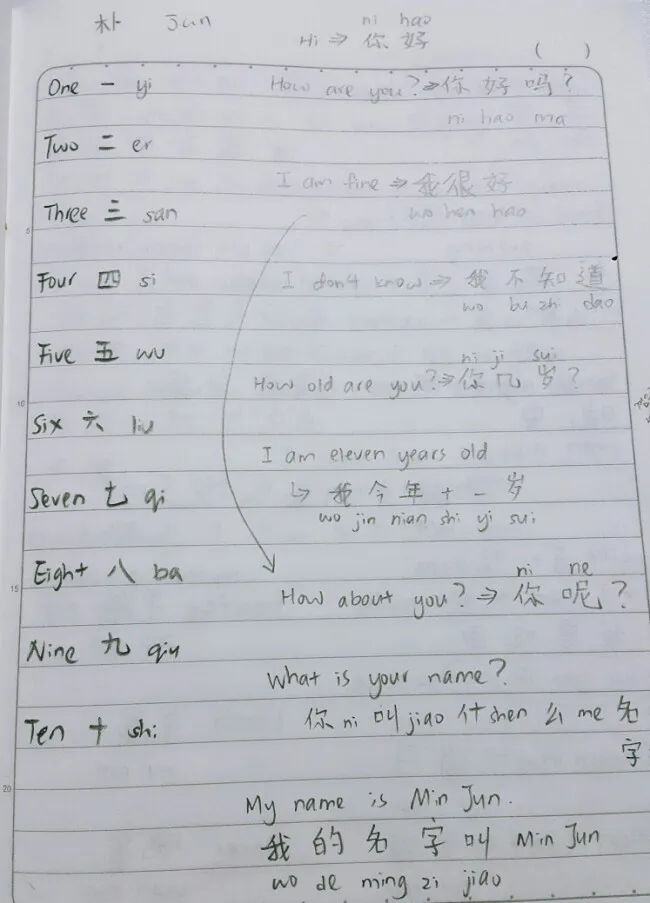 朴 Jun
ni hao
Hi ⇒ 你好
( )
One 一 yi
How are you? ⇒ 你好吗?
ni hao ma
Two 二 er
I am fine ⇒ 我很好
wo hen hao
Three 三 san
Four 四 si
I don't know ⇒ 我不知道
wo bu zhi dao
Five 五 wu
ni ji sui
How old are you? ⇒ 你几岁?
Six 六 liu
I am eleven years old
↳ 我今年十一岁
wo jin nian shi yi sui
Seven 七 qi
Eight 八 ba
ni ne
How about you? ⇒ 你呢?
Nine 九 qiu
What is your name?
你 ni 叫 jiao 什 shen 么 me 名
字
Ten 十 shi
My name is Min Jun.
我的名字叫 Min Jun
wo de ming zi jiao
5
10
15
20